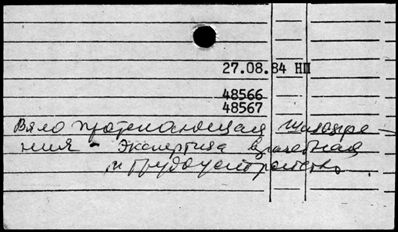 27.08.84 НП
48566
48567
Вяло протекающая шизофре-
ния - Экспертиза врачебная
и трудоустройство